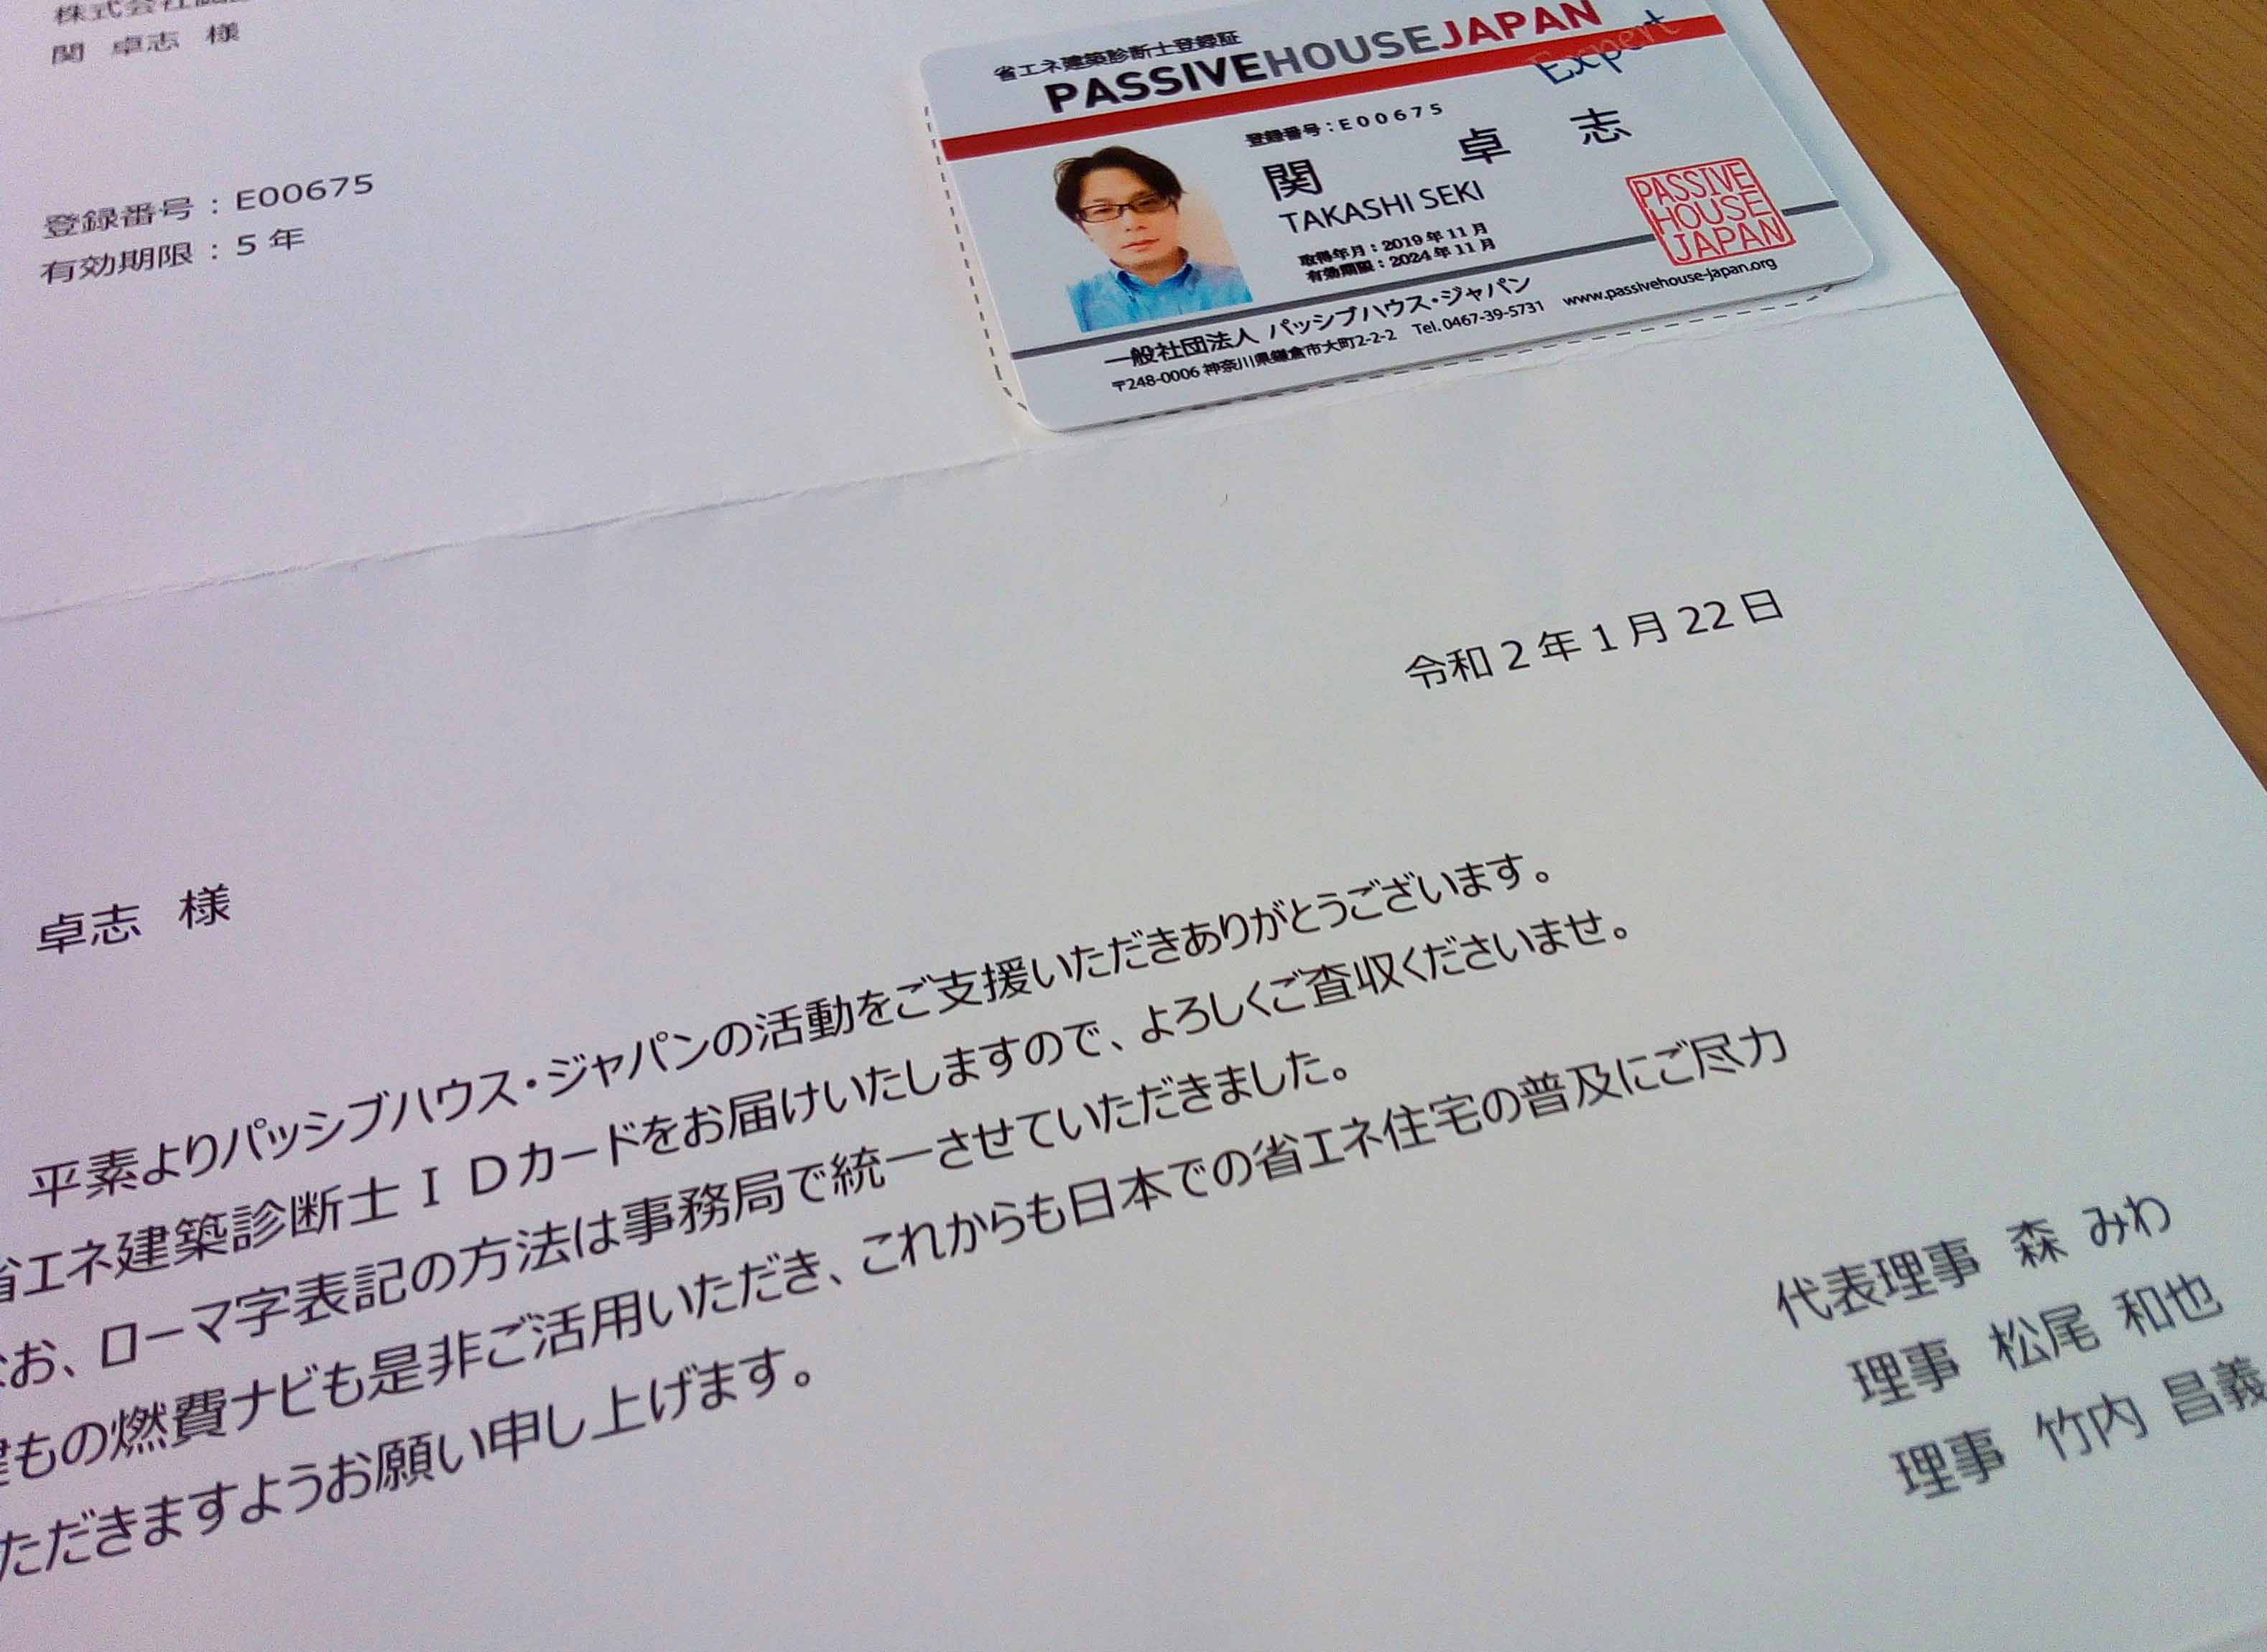 株式会社
関 卓志 様
登録番号：E00675
有効期限：5 年
省エネ建築診断士登録証
PASSIVEHOUSEJAPAN
Expert
登録番号：E00675
関 卓 志
TAKASHI SEKI
取得年月：2019 年 11 月
有効期限：2024 年 11 月
PASSIVE
HOUSE
JAPAN
一般社団法人 パッシブハウス・ジャパン
〒248-0006 神奈川県鎌倉市大町2-2-2 Tel.0467-39-5731 www.passivehouse-japan.org
令和 2 年 1 月 22 日
卓志 様
平素よりパッシブハウス・ジャパンの活動をご支援いただきありがとうございます。
省エネ建築診断士ＩＤカードをお届けいたしますので、よろしくご査収くださいませ。
なお、ローマ字表記の方法は事務局で統一させていただきました。
建もの燃費ナビも是非ご活用いただき、これからも日本での省エネ住宅の普及にご尽力
ただきますようお願い申し上げます。
代表理事 森 みわ
理事 松尾 和也
理事 竹内 昌義